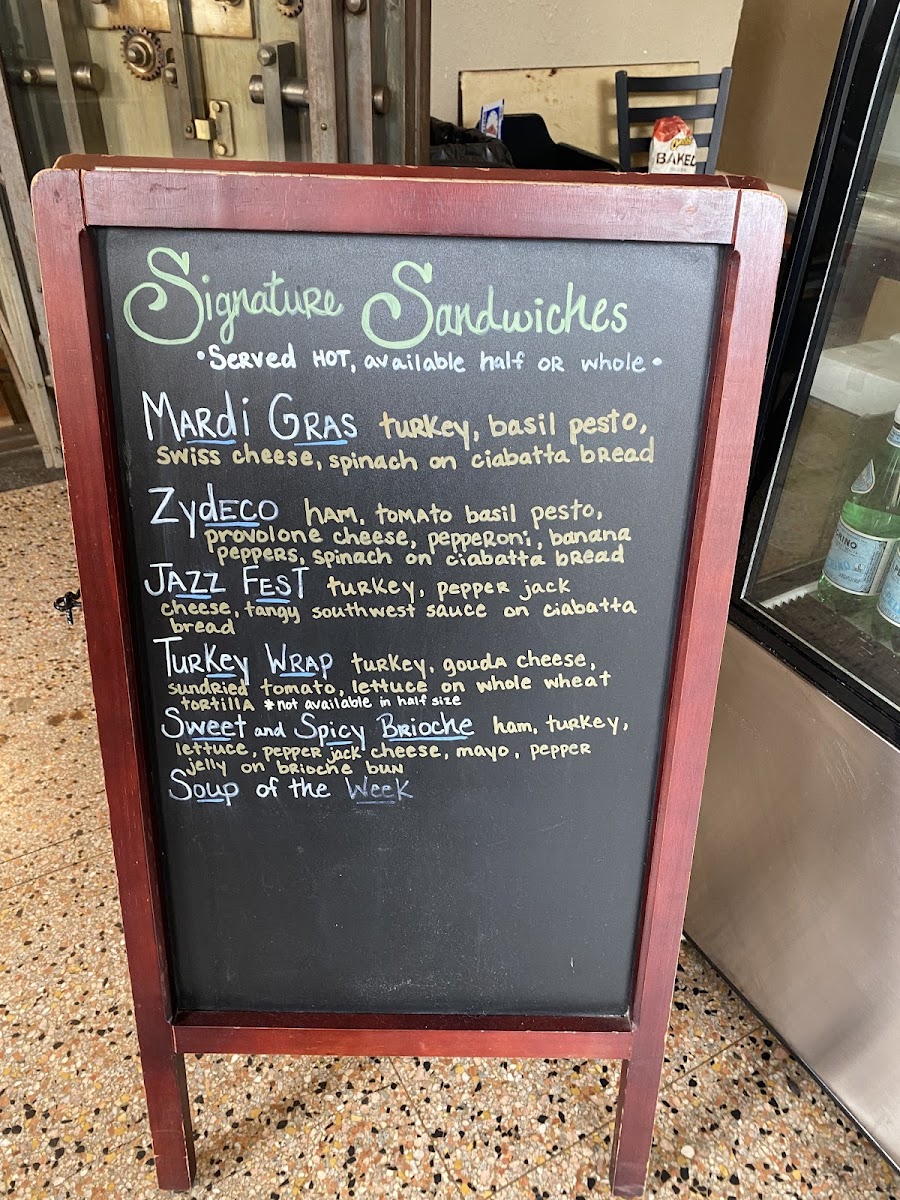 Signature Sandwiches
•Served HOT, available half or whole•
Mardi Gras turkey, basil pesto,
swiss cheese, spinach on ciabatta bread
Zydeco ham, tomato basil pesto,
provolone cheese, pepperoni, banana
peppers, spinach on ciabatta bread
Jazz Fest turkey, pepper jack
cheese, tangy southwest sauce on ciabatta
bread
Turkey Wrap turkey, gouda cheese,
sundried tomato, lettuce on whole wheat
tortilla *not available in half size
Sweet and Spicy Brioche ham, turkey,
lettuce, pepper jack cheese, mayo, pepper
jelly on brioche bun
Soup of the Week
BAKED